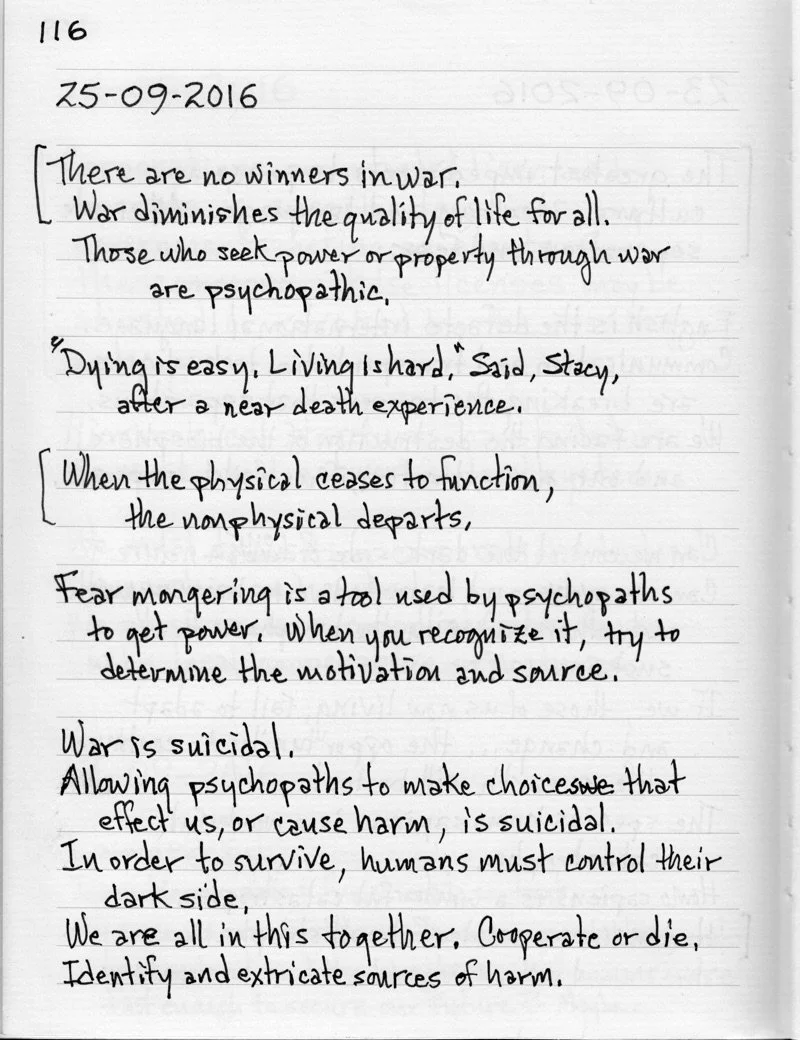 116
25-09-2016
There are no winners in war.
War diminishes the quality of life for all.
Those who seek power or property through war
are psychopathic.
"Dying is easy. Living is hard," Said, Stacy,
after a near death experience.
When the physical ceases to function,
the nonphysical departs.
Fear mongering is a tool used by psychopaths
to get power. When you recognize it, try to
determine the motivation and source.
War is suicidal.
Allowing psychopaths to make choices that
effect us, or cause harm, is suicidal.
In order to survive, humans must control their
dark side.
We are all in this together. Cooperate or die.
Identify and extricate sources of harm.